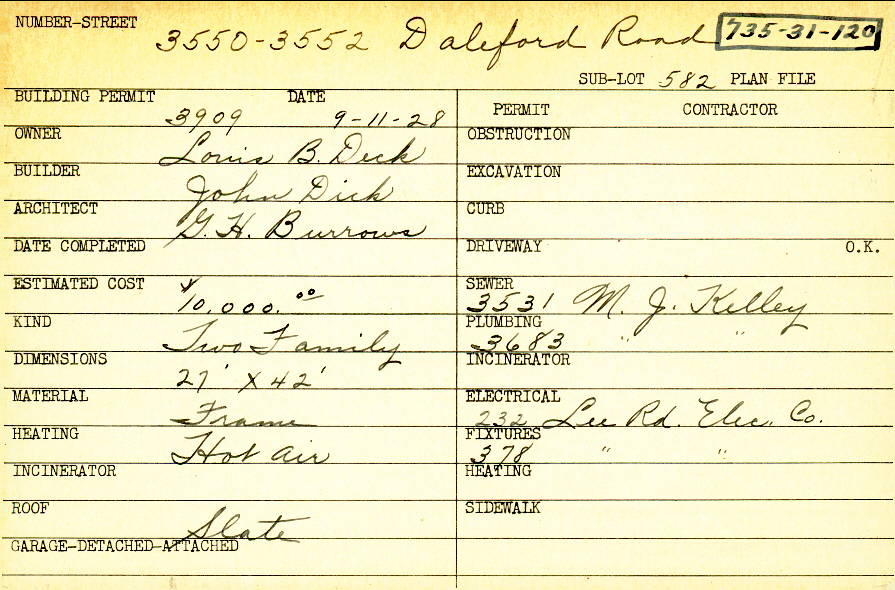 NUMBER-STREET 3550-3552 Daleford Road 735-31-120
SUB-LOT 582 PLAN FILE
BUILDING PERMIT 3909 DATE 9-11-28
OWNER Louis B. Deck
BUILDER John Dick
ARCHITECT G. H. Burrows
DATE COMPLETED
ESTIMATED COST $10,000.00
KIND Two Family
DIMENSIONS 27' X 42'
MATERIAL Frame
HEATING Hot air
INCINERATOR
ROOF Slate
GARAGE-DETACHED-ATTACHED
PERMIT CONTRACTOR
OBSTRUCTION
EXCAVATION
CURB
DRIVEWAY O.K.
SEWER 3531 M. J. Kelley
PLUMBING 3683 " "
INCINERATOR
ELECTRICAL 232 Lee Rd. Elec. Co.
FIXTURES 378 " "
HEATING
SIDEWALK